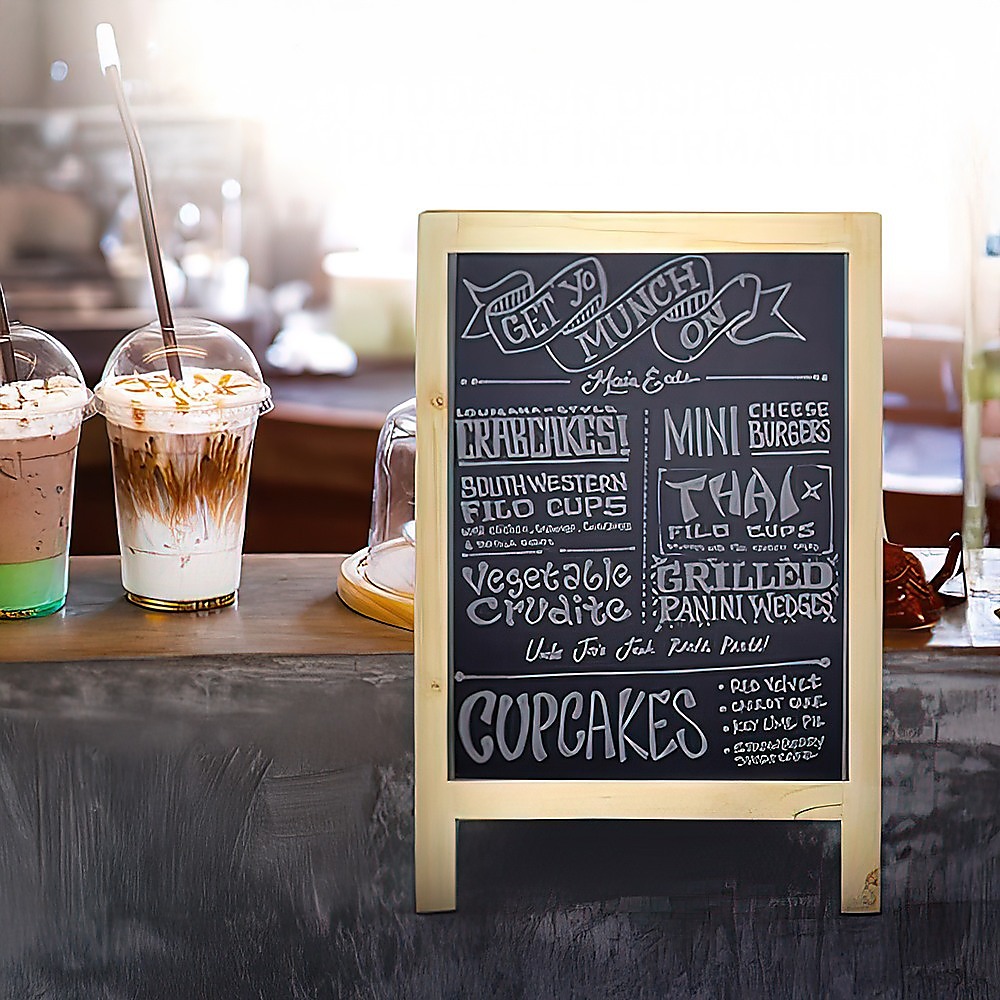 GET YO
MUNCH
ON
Main Eats
LOUISIANA-STYLE
CRABCAKES!
SOUTHWESTERN
FILO CUPS
Vegetable
Crudite
MINI CHEESE
BURGERS
THAI
FILO CUPS
GRILLED
PANINI WEDGES
Uncle Jim's Jerk Pasta!
CUPCAKES
• RED VELVET
• CARROT CAKE
• KEY LIME PIE
• STRAWBERRY
SHORTCAKE